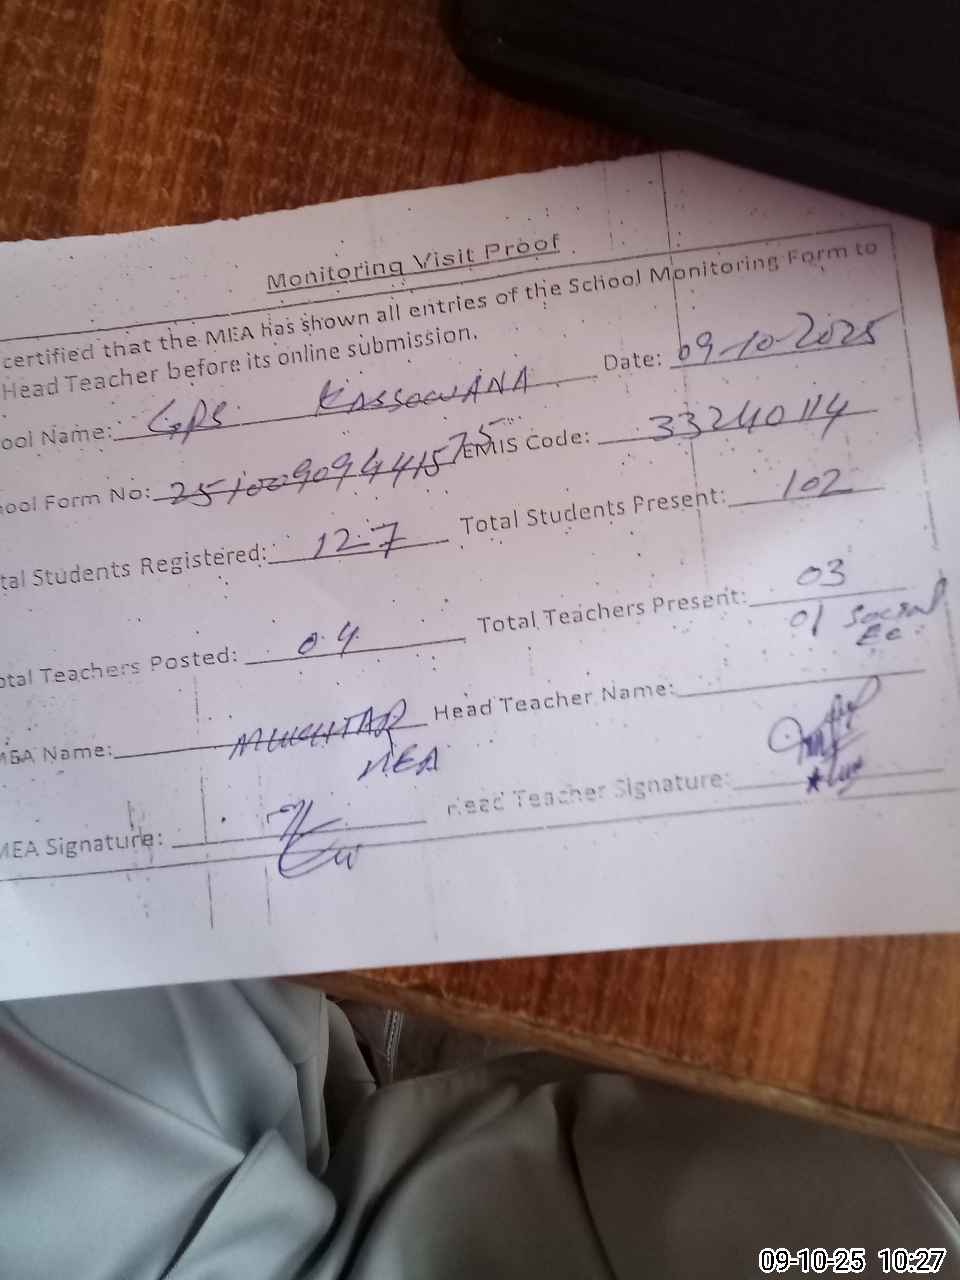 Monitoring Visit Proof
certified that the MEA has shown all entries of the School Monitoring Form to
Head Teacher before its online submission.
ool Name: GPS KASSOWANA Date: 09-10-2025
ool Form No: EMIS Code: 33240114
tal Students Registered: 127 Total Students Present: 102
otal Teachers Posted: 04 Total Teachers Present: 03
01 Social
MEA Name: MUKHTAR Head Teacher Name:
MEA
MEA Signature: Head Teacher Signature:
09-10-25 10:27